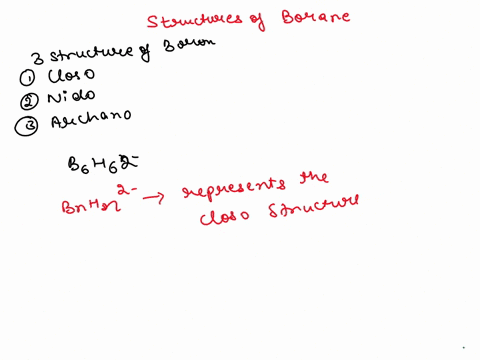 Structures of Borane
3 Structure of Boron
① Closo
② Nido
③ Archano
B6H6 2-
BnHn 2- → represents the
closo structure